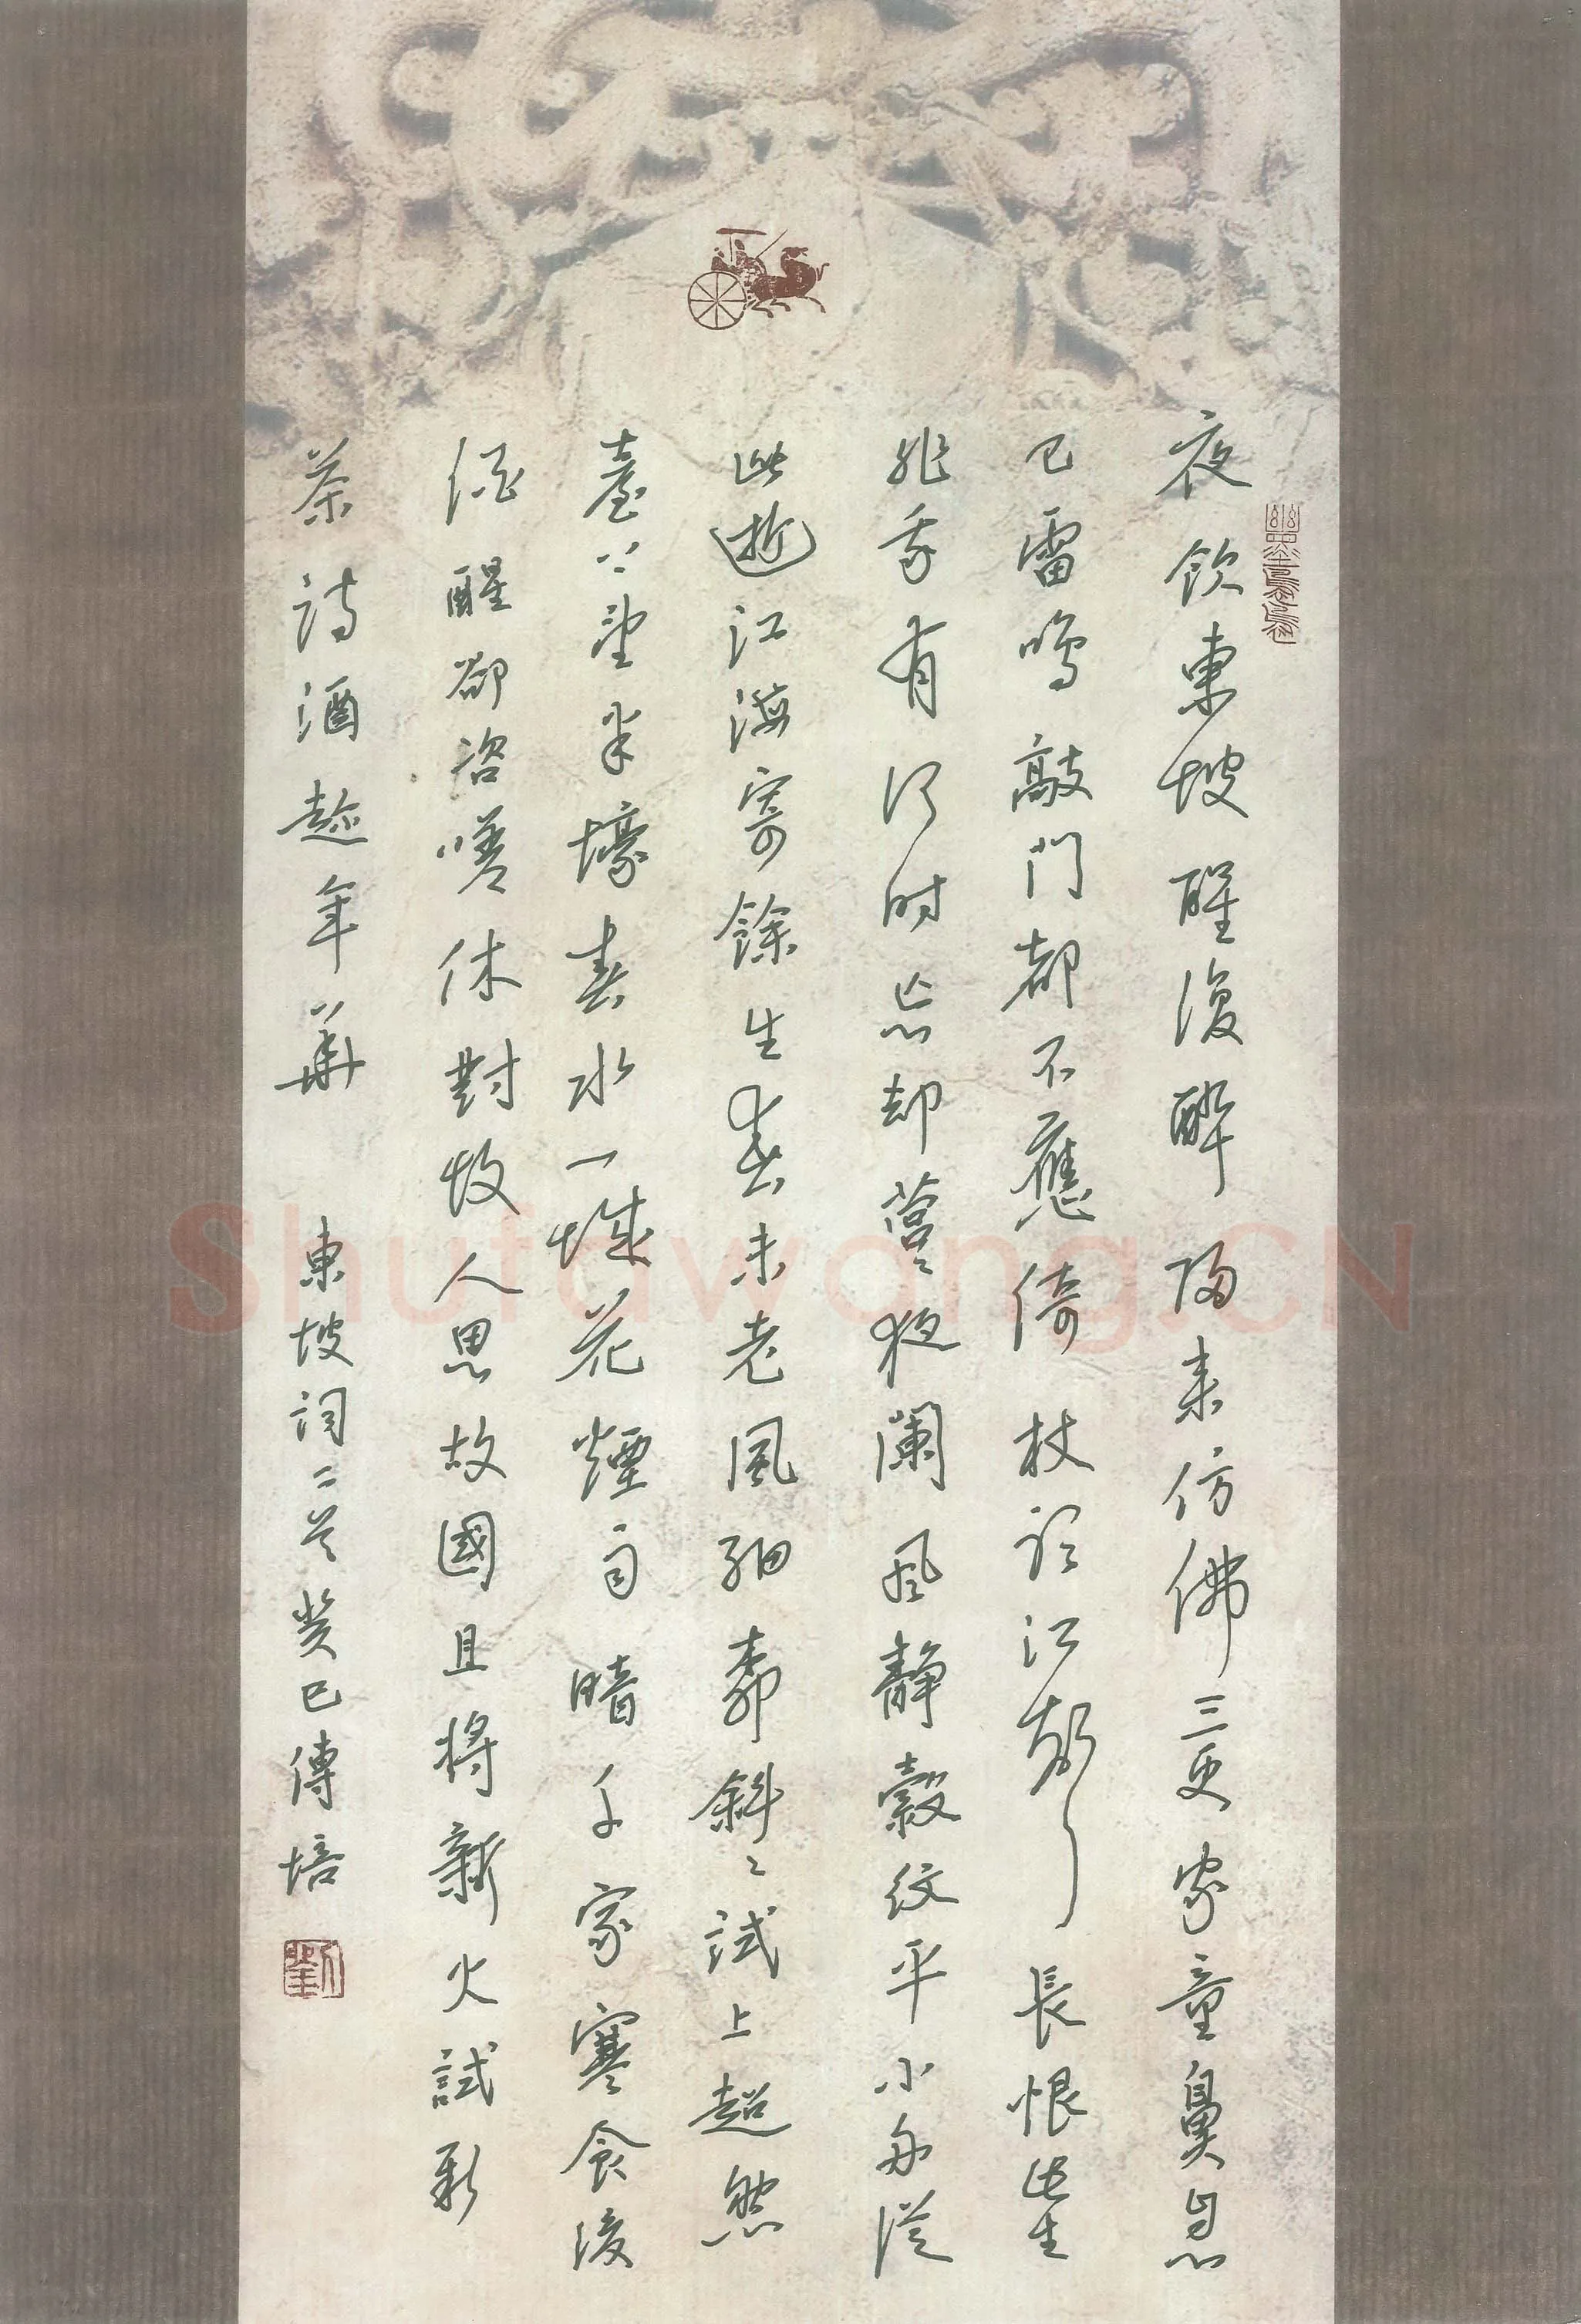 夜飲東坡醒復醉歸来仿佛三更家童鼻息
已雷鳴敲門都不應倚杖聽江聲長恨此生
非我有何时忘却營營夜闌風靜縠纹平小舟從
此逝江海寄餘生春未老風細柳斜斜試上超然
臺上望半壕春水一城花煙雨暗千家寒食後
酒醒卻咨嗟休對故人思故國且將新火試新
茶詩酒趁年華 東坡词二首癸巳傳培
劉
Shufawang.CN